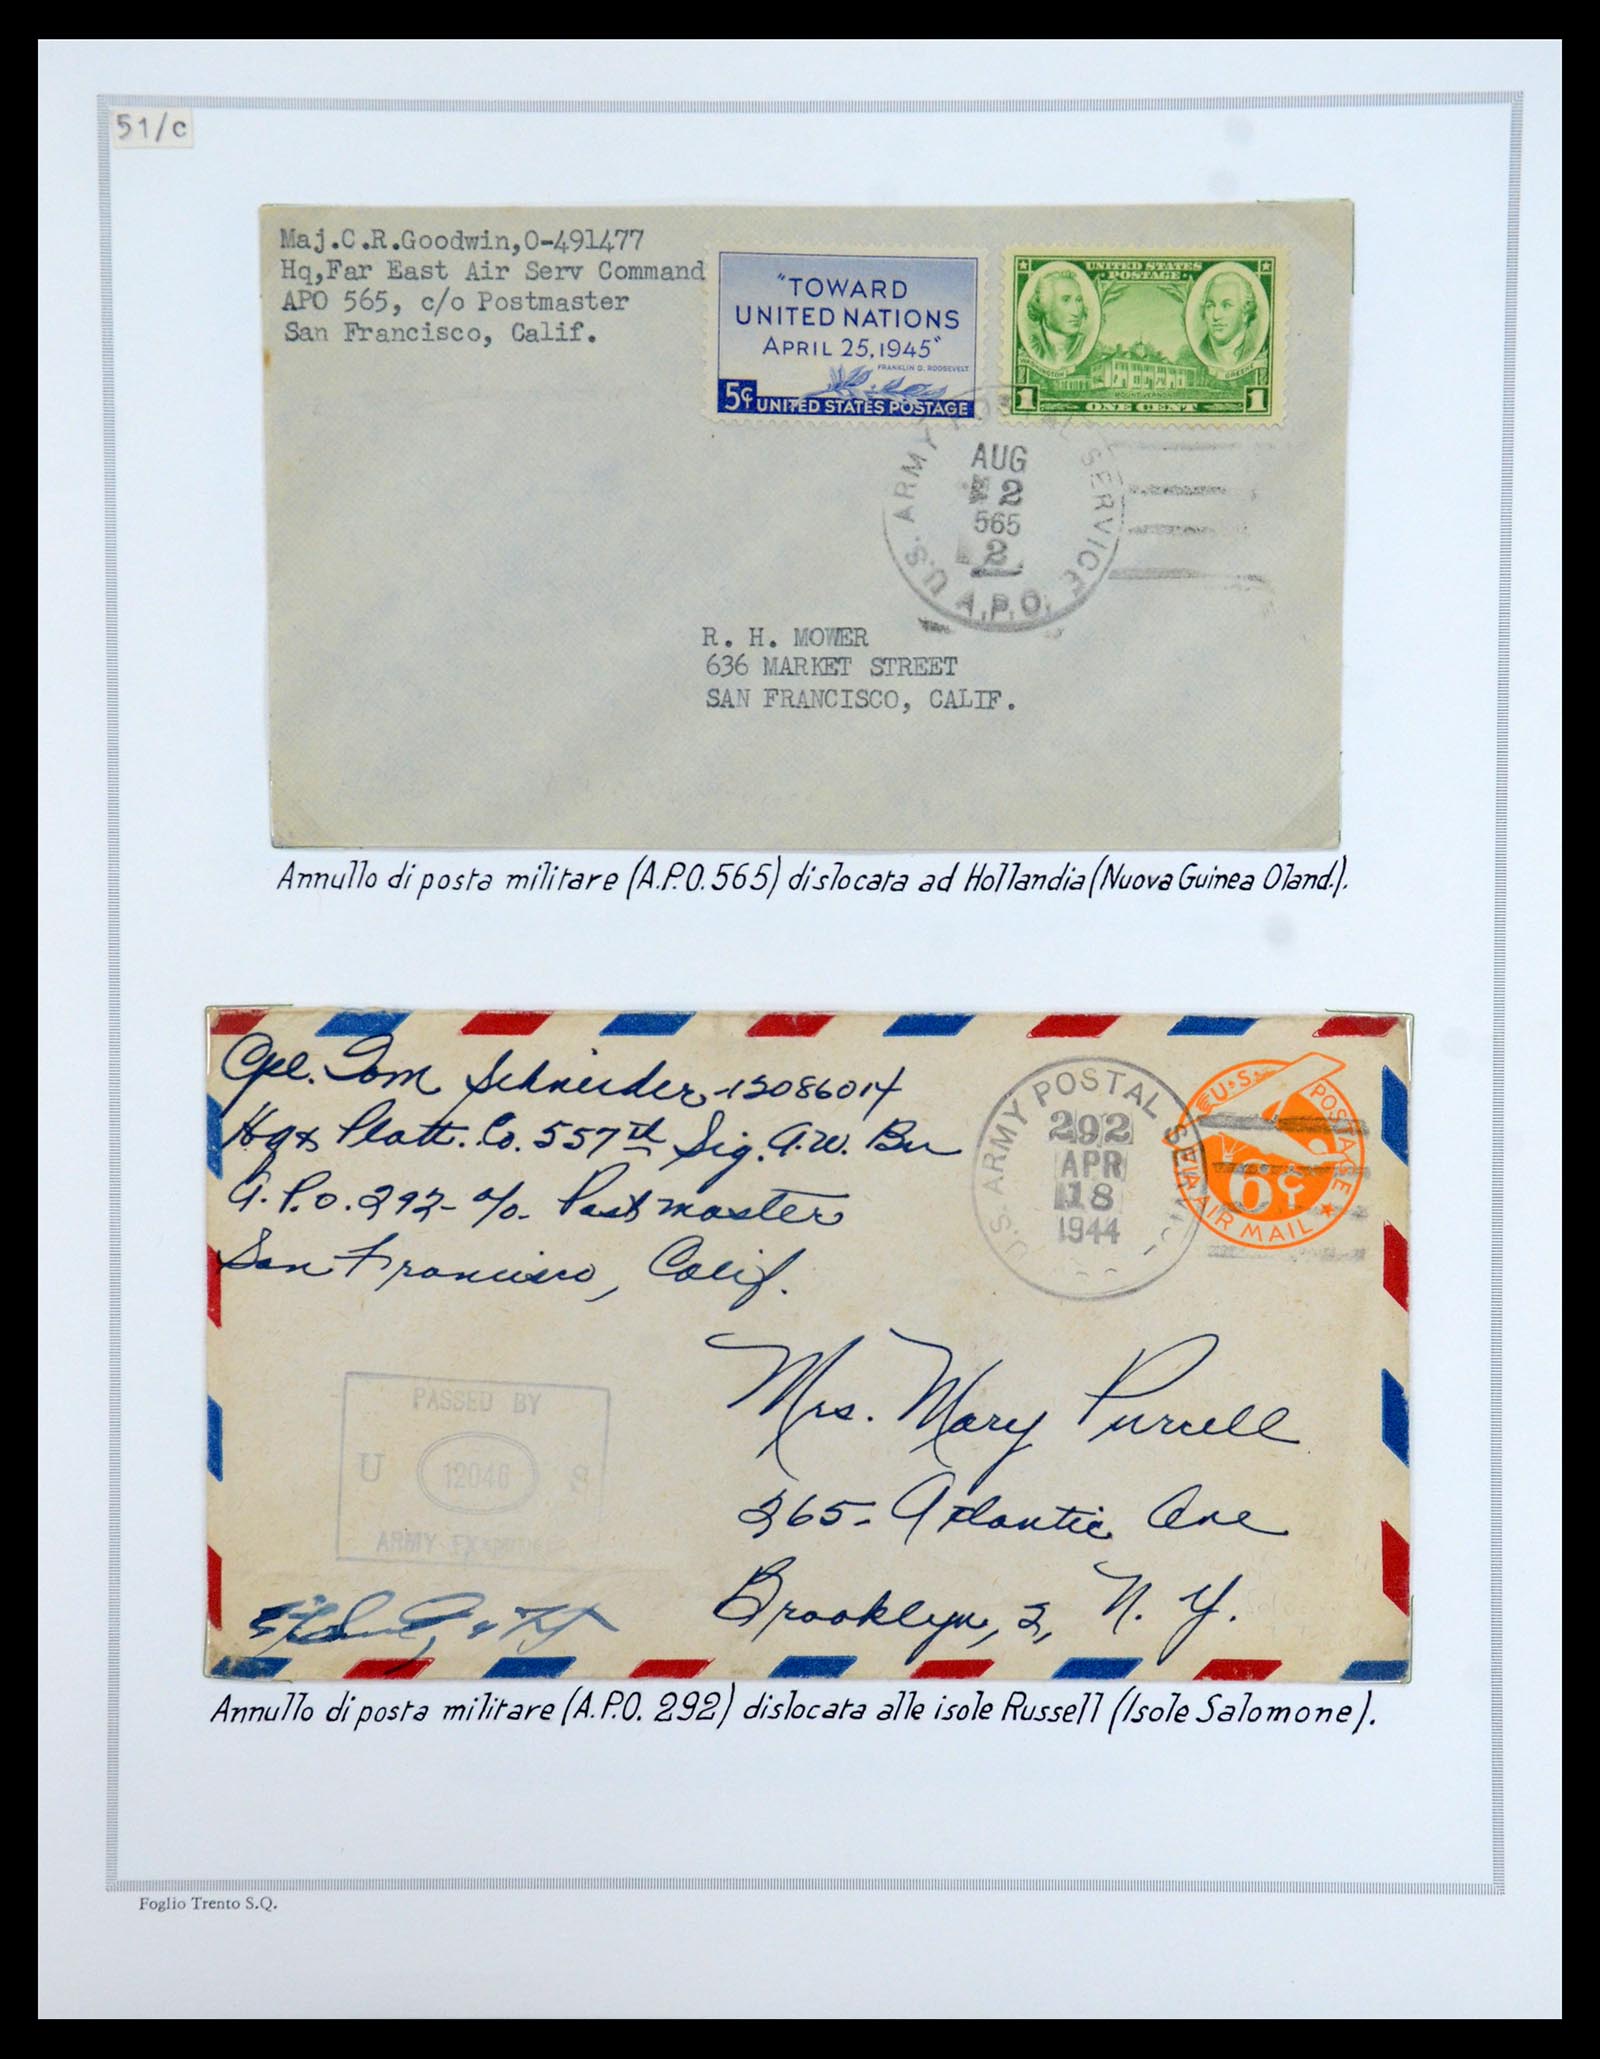 51/c
Maj.C.R.Goodwin,O-491477
Hq,Far East Air Serv Command
APO 565, c/o Postmaster
San Francisco, Calif.
"TOWARD
UNITED NATIONS
APRIL 25, 1945"
FRANKLIN D. ROOSEVELT
5¢ UNITED STATES POSTAGE
UNITED STATES
POSTAGE
WASHINGTON
GREENE
MOUNT VERNON
1 ONE CENT 1
U.S. ARMY POSTAL SERVICE
AUG
2
565
2
A.P.O.
R. H. MOWER
636 MARKET STREET
SAN FRANCISCO, CALIF.
Annullo di posta militare (A.P.O. 565) dislocata ad Hollandia (Nuova Guinea Oland.).
Cpl. Tom Schneider-12086014
Hq & Platt. Co. 557th Sig. A.W. Bn
A.P.O. 292- c/o- Postmaster
San Francisco, Calif.
U.S. ARMY POSTAL SERVICE
292
APR
18
1944
U.S. POSTAGE
6¢
VIA AIR MAIL
PASSED BY
U 12046 S
ARMY EXAMINER
Mrs. Mary Purcell
265- Atlantic Ave
Brooklyn, 2, N. Y.
Annullo di posta militare (A.P.O. 292) dislocata alle isole Russell (Isole Salomone).
Foglio Trento S.Q.